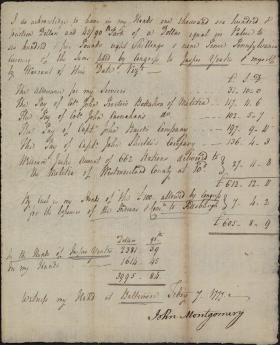 I acknowledge to have in my Hands one thousand six hundred &
fourteen Dollars and 45/90 Parts of a Dollar equal in Value to
six hundred & five Pounds eight Shillings & nine Pence Pennsylvania
currency of the Sum by Congress to Jasper Yeates & myself
by Warrant of this Date Vizt
£ S D
The allowance for my Services 31.10.0
The Pay of Colo John Proctors Battalion of Militia 119.4.6
The Pay of Colo John 102.5.7
The Pay of Capt John Company 197.9.11
The Pay of Capt John Company 136.4.3
William amount of 662 Rations delivered to
the Militia of Westmoreland County at 10d 27.11.8
£ 612.12.11
By Cash in my Hands of the £100 allowed by Congress
for the Expences of the Indians from to Pittsburgh 7.4.2
£ 605.8.9
Dollars 90ths
In the Hands of Jasper Yeates 2381 39
In my Hands 1614 45
3995.84
Witness my Hand at Baltimore Febry 7. 1777
John Montgomery